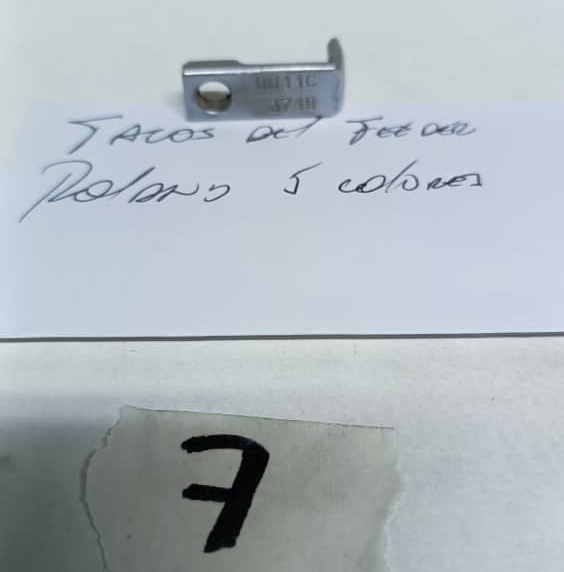 3718
TACOS DEL FEEDER
ROLAND 5 COLORES
7